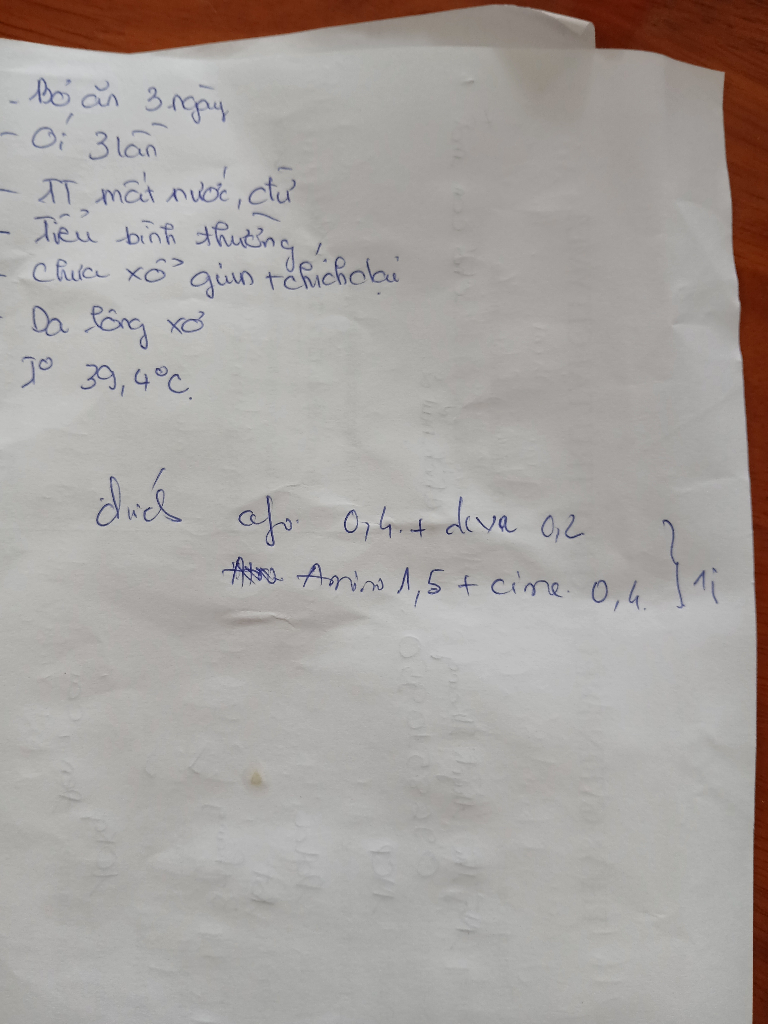 - Bỏ ăn 3 ngày
- Ói 3 lần
- TT mất nước, đtử
- Tiểu bình thường,
- Chưa xổ giun + chích dại
- Da lông xơ
T° 39,4°C.
0,4. + deva 0,2
Amino 1,5 + cime. 0,4. } 1i